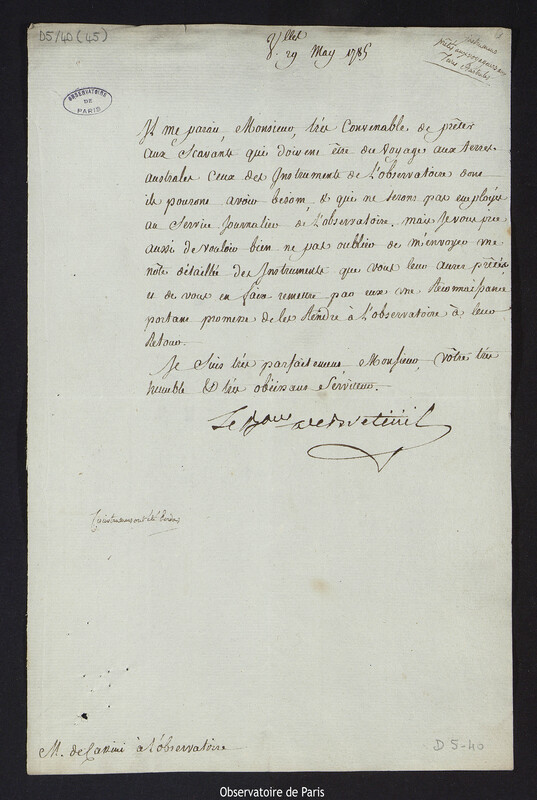 D5/40 (45)
V.lles 29 May 1785
Instruments
prêtés aux voyageurs aux
Terres Australes
OBSERVATOIRE
DE
PARIS
Il me parait, Monsieur, très convenable de prêter
aux Scavants qui doivent être du voyage aux terres
australes ceux des Instruments de l'observatoire dont
ils pouront avoir besoin, & qui ne seront pas employés
au Service Journalier de l'observatoire. mais Je vous prie
aussi de vouloir bien ne pas oublier de m'envoyer une
note détaillée des Instruments que vous leur aurez prêtés
et de vous en faire remettre par eux une Reconnaissance
portant promesse de les Rendre à l'observatoire à leur
Retour.
Je suis très parfaitement, Monsieur, votre très
humble & très obéissant Serviteur.
Le Bon de Breteüil
M. de Cassini à l'observatoire
D 5-40
Observatoire de Paris